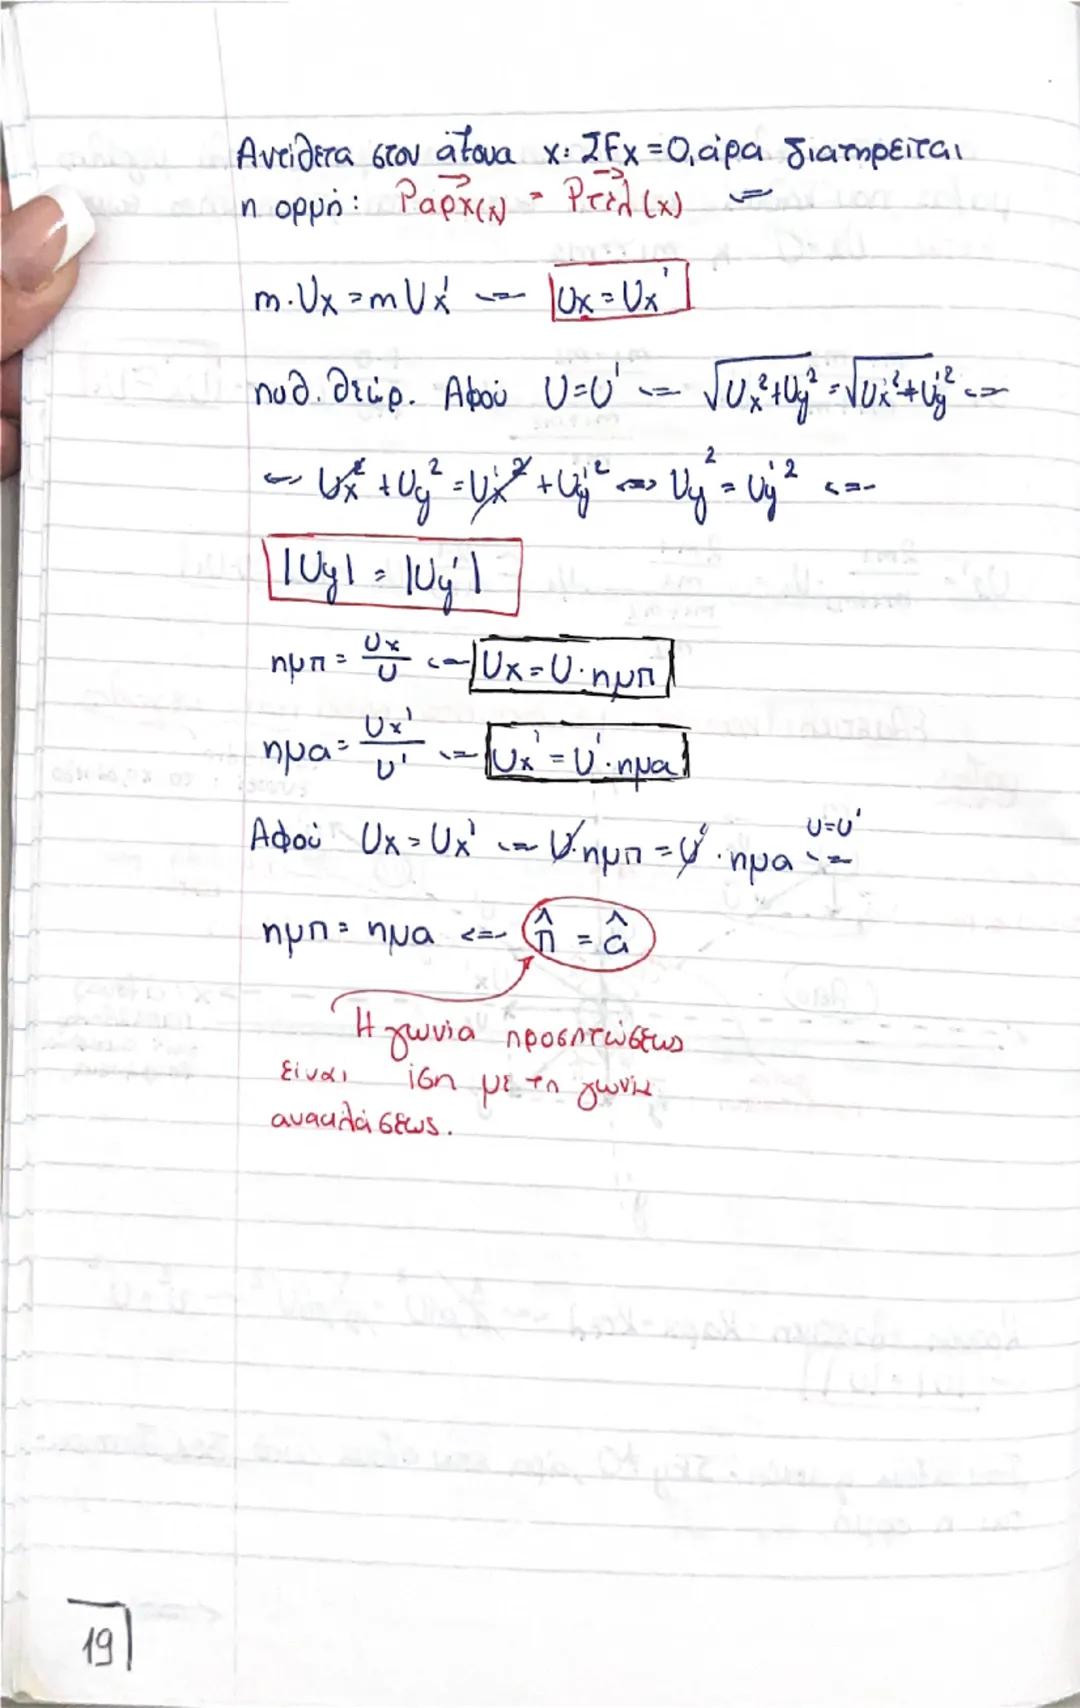 Αντίθετα στον άξονα x: ΣFx = 0, άρα διατηρείται
η ορμή: Pαρχ(x) = Pτελ(x) <=>
m·Ux = mUx' <=> Ux = Ux'
πυθ. θεώρ. Αφού U=U' <=> √Ux²+Uy² = √Ux'²+Uy'² <=>
<=> Ux² + Uy² = Ux'² + Uy'² <=> Uy² = Uy'² <=>
|Uy| = |Uy'|
ημπ = Ux/U <=> Ux = U·ημπ
ημα = Ux'/U' <=> Ux' = U'·ημα
Αφού Ux = Ux' <=> U·ημπ = U'·ημα <=> U=U'
ημπ = ημα <=> π̂ = α̂
Η γωνία προσπτώσεως
είναι ίση με τη γωνία
ανακλάσεως.
19